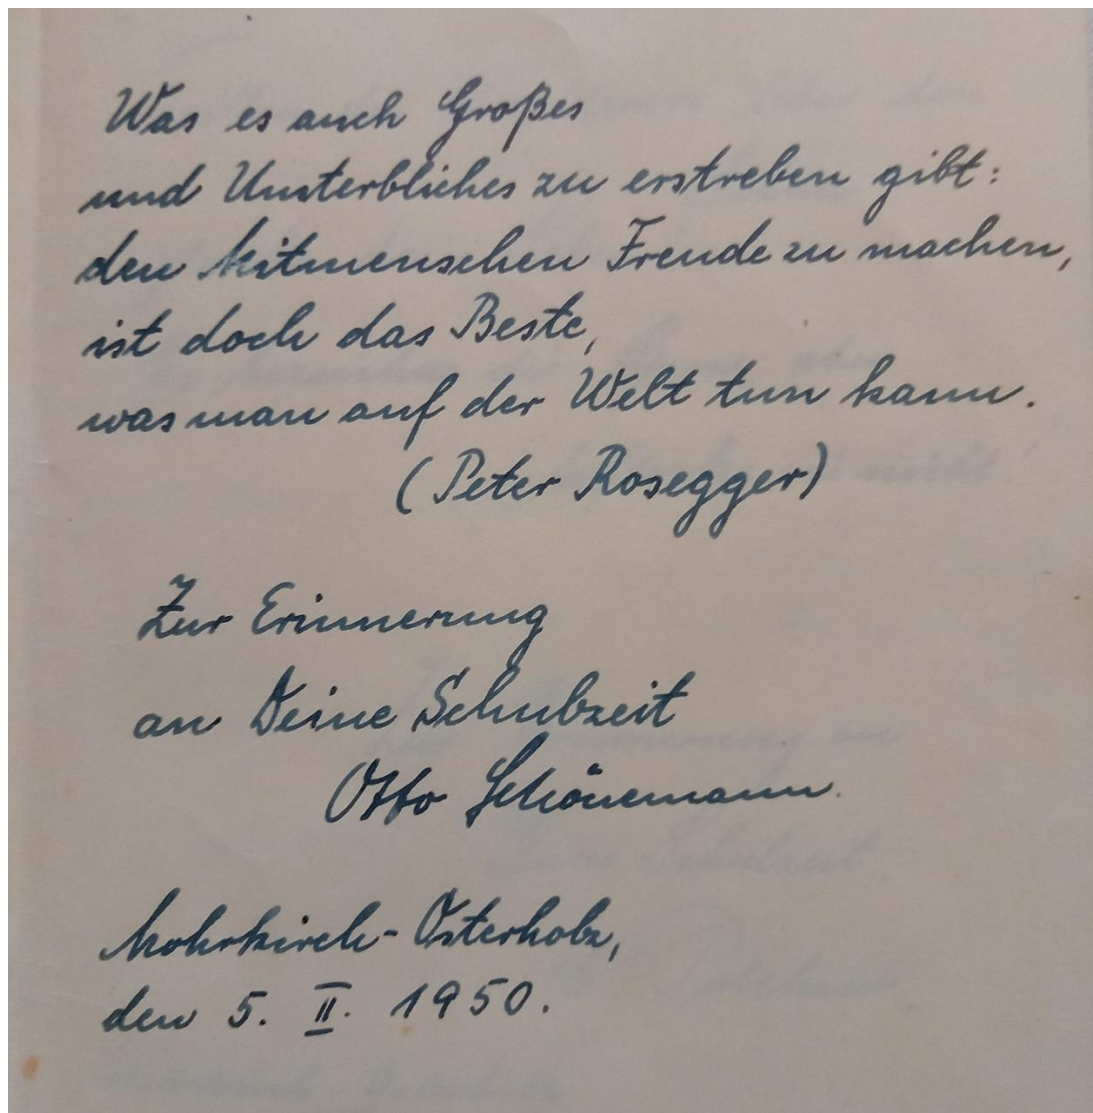 Was es auch Großes
und Unsterbliches zu erstreben gibt:
den Mitmenschen Freude zu machen,
ist doch das Beste,
was man auf der Welt tun kann.
(Peter Rosegger)
Zur Erinnerung
an Deine Schulzeit
Otto Schönemann.
Mohrkirch-Osterholz,
den 5. II. 1950.